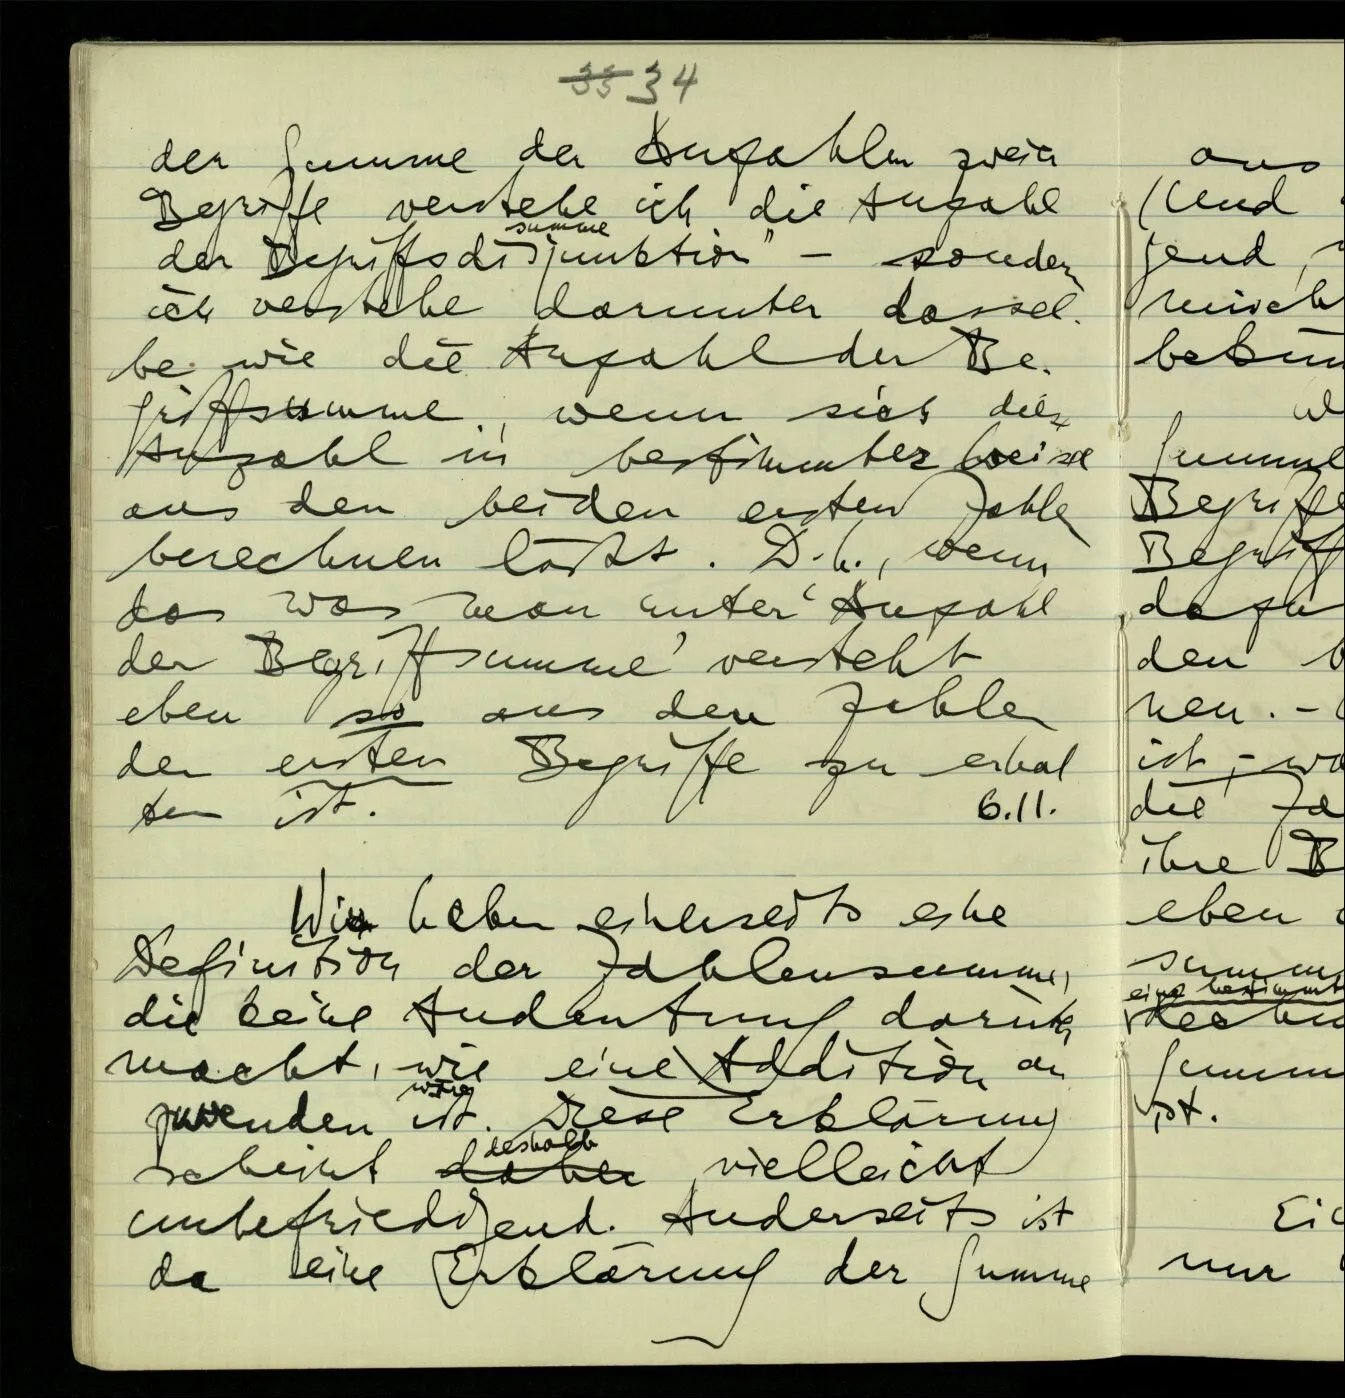 35 34
der Summe der Anzahlen zweier
Begriffe verstehe ich die Anzahl
summe
der Begriffsdisjunktion" – sondern
ich verstehe darunter dassel-
be wie die Anzahl der Be-
griffsumme, wenn sich diese
Anzahl in bestimmter Weise
aus den beiden ersten Zahlen
berechnen läßt. D.h., wenn
das was man unter 'Anzahl
der Begriffsumme' versteht
eben so aus den Zahlen
der ersten Begriffe zu erhal
ten ist. 6.11.
Wir haben einerseits eine
Definition der Zahlensumme,
die keine Andeutung darüber
macht, wie eine Addition an
wäre
zuwenden ist. Diese Erklärung
deshalb
scheint daher vielleicht
unbefriedigend. Anderseits ist
da eine Erklärung der Summe
aus
(Und
gend,
ist, –
die
ihre
eben
eine bestimmte
ist.
nur